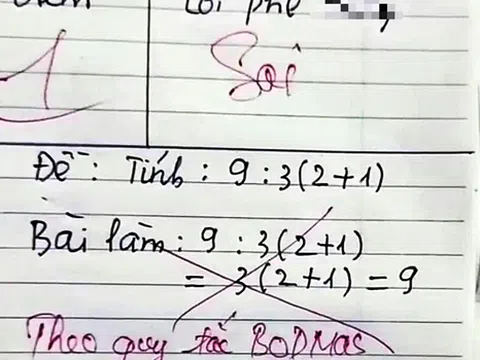 Lời phê
1
Sai
Đề: Tính: 9:3(2+1)
Bài làm: 9:3(2+1)
= 3(2+1) = 9
Theo quy tắc BODMAS